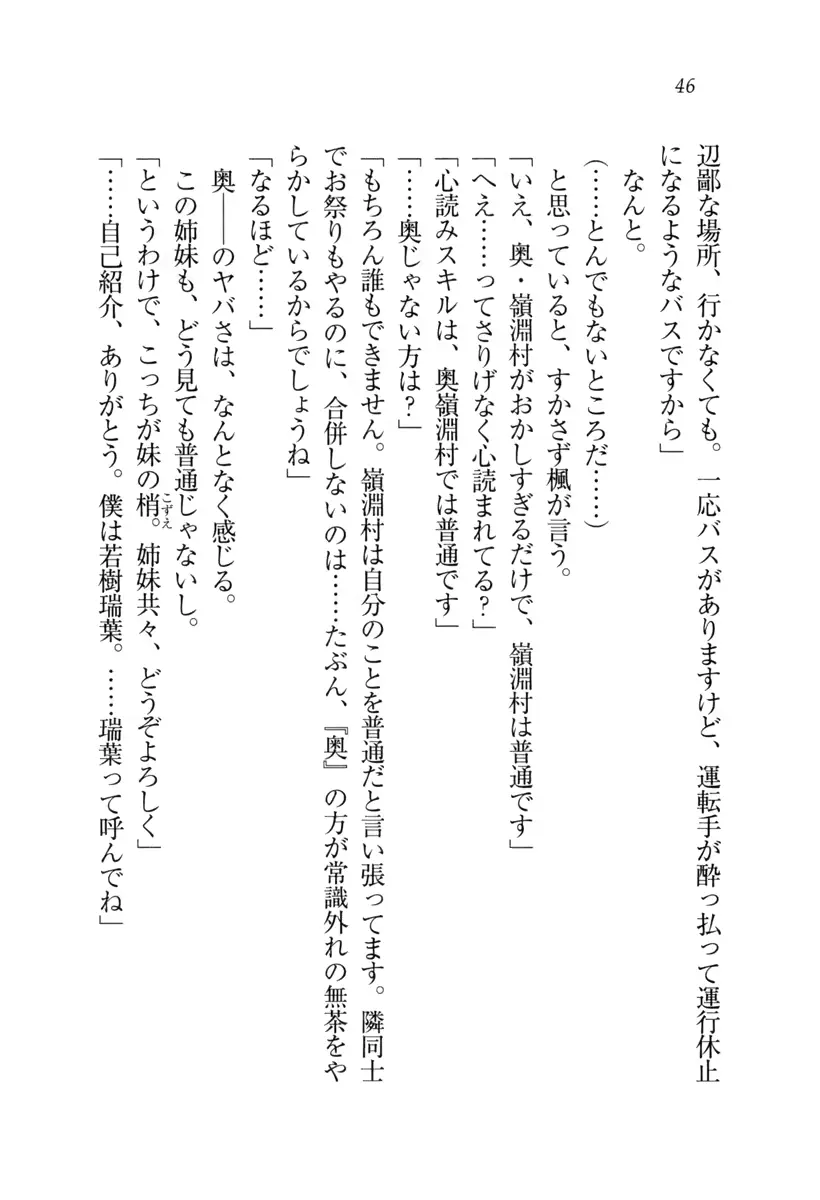 46
辺鄙な場所、行かなくても。一応バスがありますけど、運転手が酔っ払って運行休止
になるようなバスですから」
なんと。
(……とんでもないところだ……)
と思っていると、すかさず楓が言う。
「いえ、奥・嶺淵村がおかしすぎるだけで、嶺淵村は普通です」
「へえ……ってさりげなく心読まれてる?」
「心読みスキルは、奥嶺淵村では普通です」
「……奥じゃない方は?」
「もちろん誰もできません。嶺淵村は自分のことを普通だと言い張ってます。隣同士
でお祭りもやるのに、合併しないのは……たぶん、『奥』の方が常識外れの無茶をや
らかしているからでしょうね」
「なるほど……」
奥――のヤバさは、なんとなく感じる。
この姉妹も、どう見ても普通じゃないし。
「というわけで、こっちが妹の梢。姉妹共々、どうぞよろしく」
こずえ
「……自己紹介、ありがとう。僕は若樹瑞葉。……瑞葉って呼んでね」